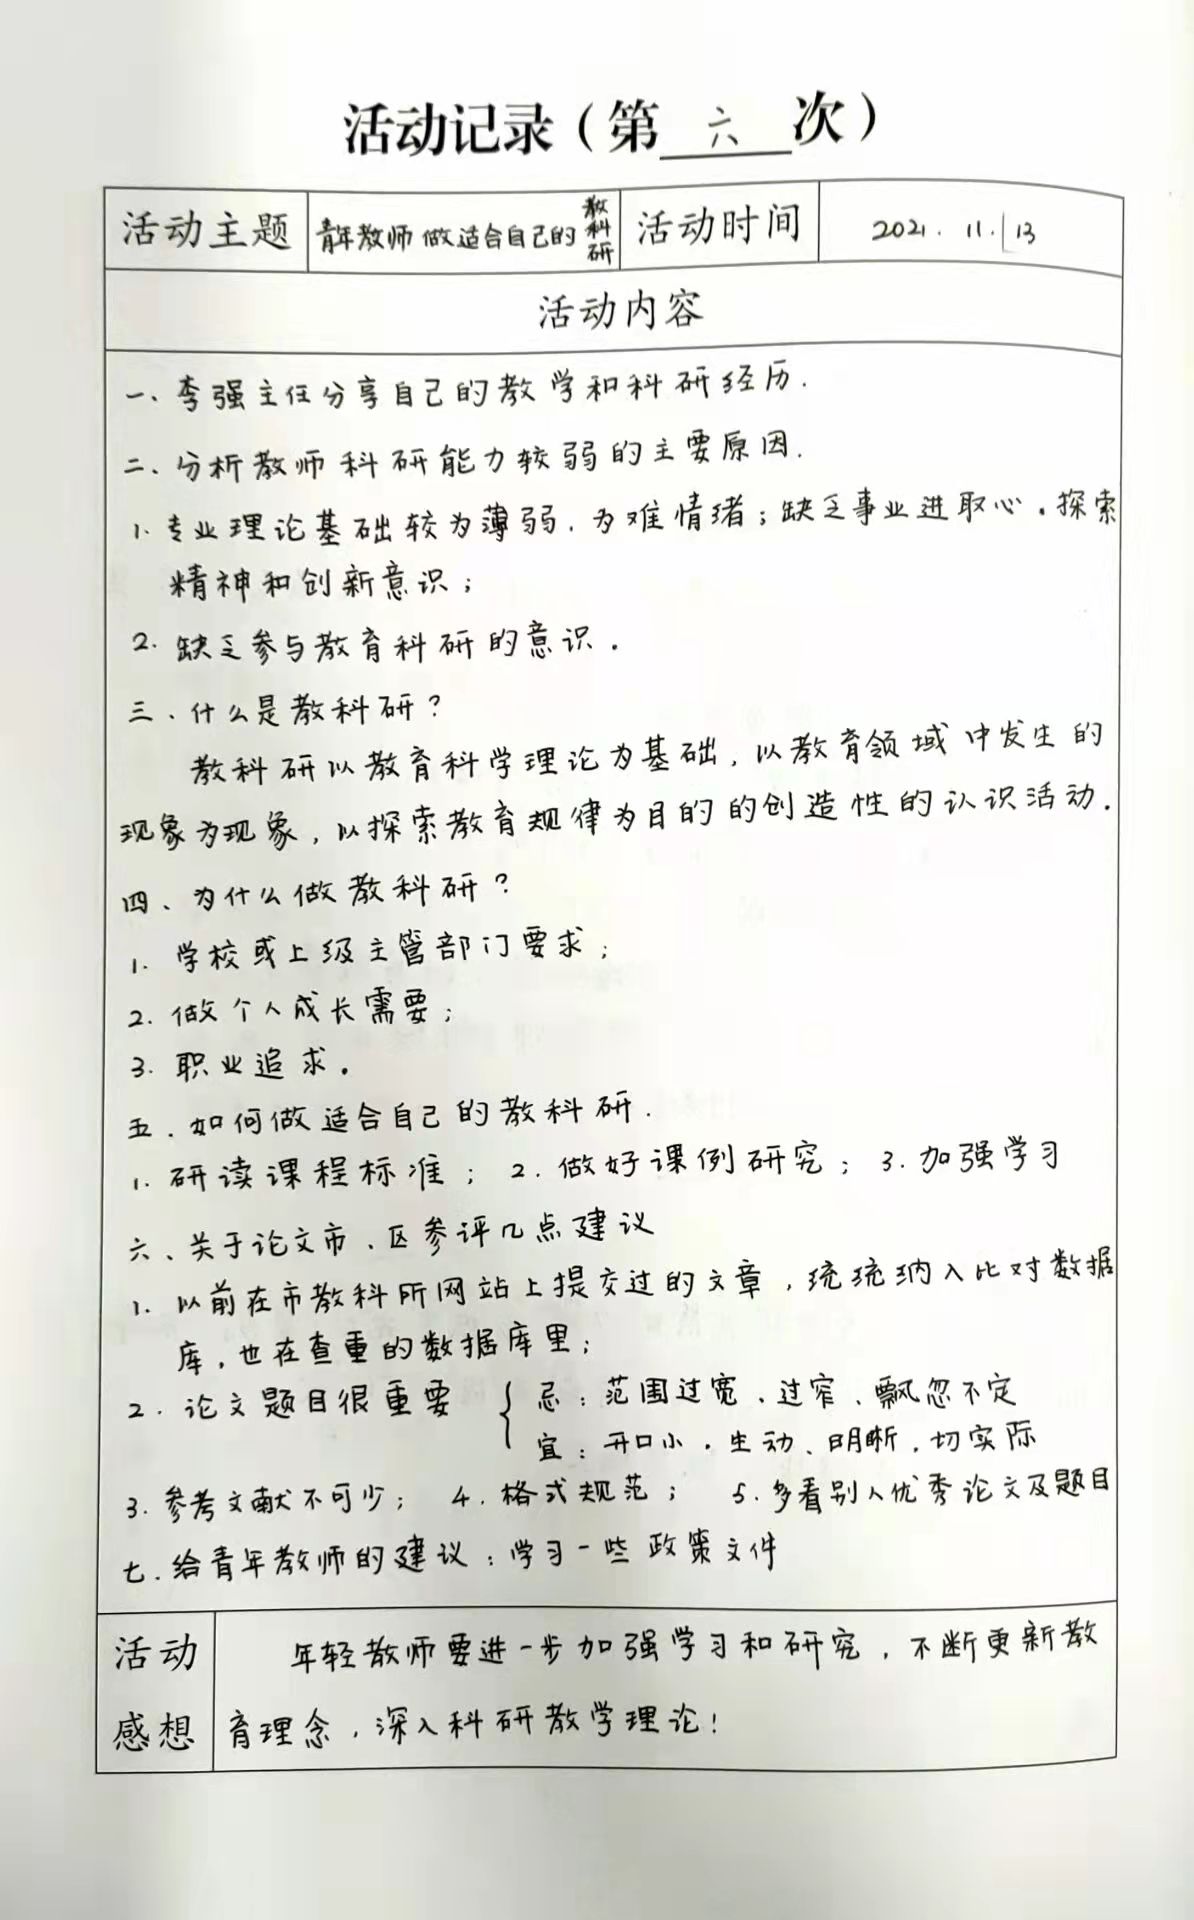 活动记录（第 六 次）
活动主题 青年教师做适合自己的教科研 活动时间 2021.11.13
活动内容
一、李强主任分享自己的教学和科研经历.
二、分析教师科研能力较弱的主要原因.
1.专业理论基础较为薄弱，为难情绪；缺乏事业进取心。探索
精神和创新意识；
2.缺乏参与教育科研的意识。
三．什么是教科研？
教科研以教育科学理论为基础，以教育领域中发生的
现象为现象，以探索教育规律为目的的创造性的认识活动.
四、为什么做教科研？
1.学校或上级主管部门要求；
2.做个人成长需要；
3.职业追求。
五．如何做适合自己的教科研.
1.研读课程标准；2.做好课例研究；3.加强学习
六、关于论文市、区参评几点建议
1.以前在市教科所网站上提交过的文章，统统纳入比对数据
库，也在查重的数据库里；
2.论文题目很重要 { 忌：范围过宽、过窄、飘忽不定
宜：开口小。生动、明晰，切实际
3.参考文献不可少； 4.格式规范； 5.多看别人优秀论文及题目
七．给青年教师的建议：学习一些政策文件
活动感想
年轻教师要进一步加强学习和研究，不断更新教
育理念，深入科研教学理论！